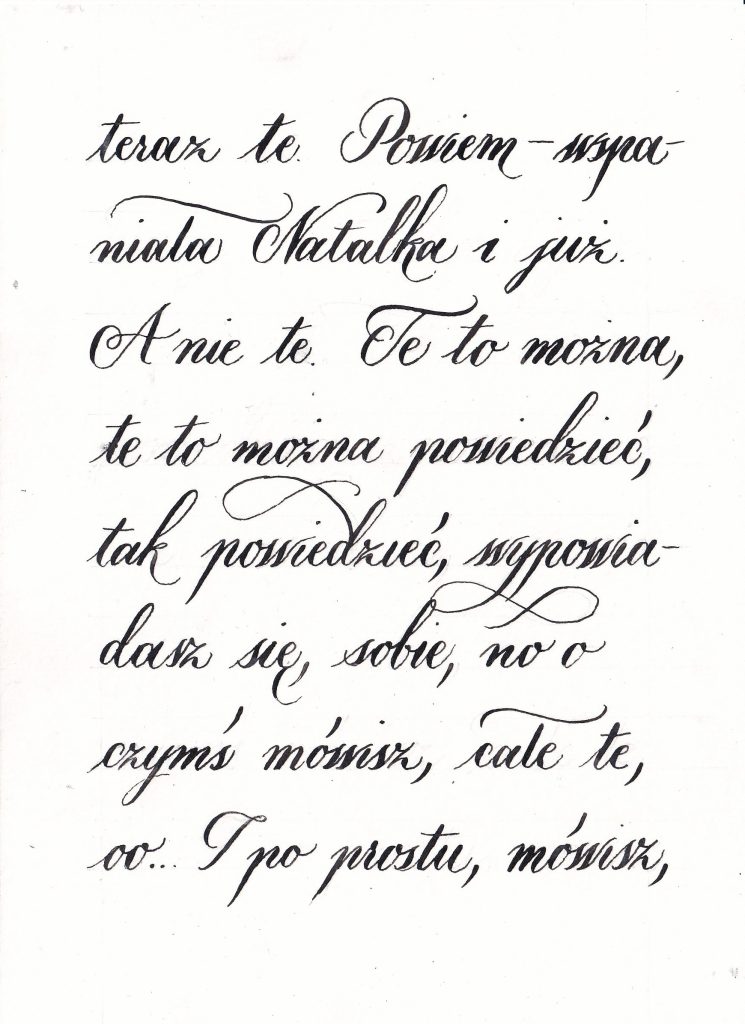 teraz te. Powiem – wspa-
niała Natalka i już.
A nie te. Te to można,
te to można powiedzieć,
tak powiedzieć, wypowia-
dasz się, sobie, no o
czymś mówisz, całe te,
oo... I po prostu, mówisz,